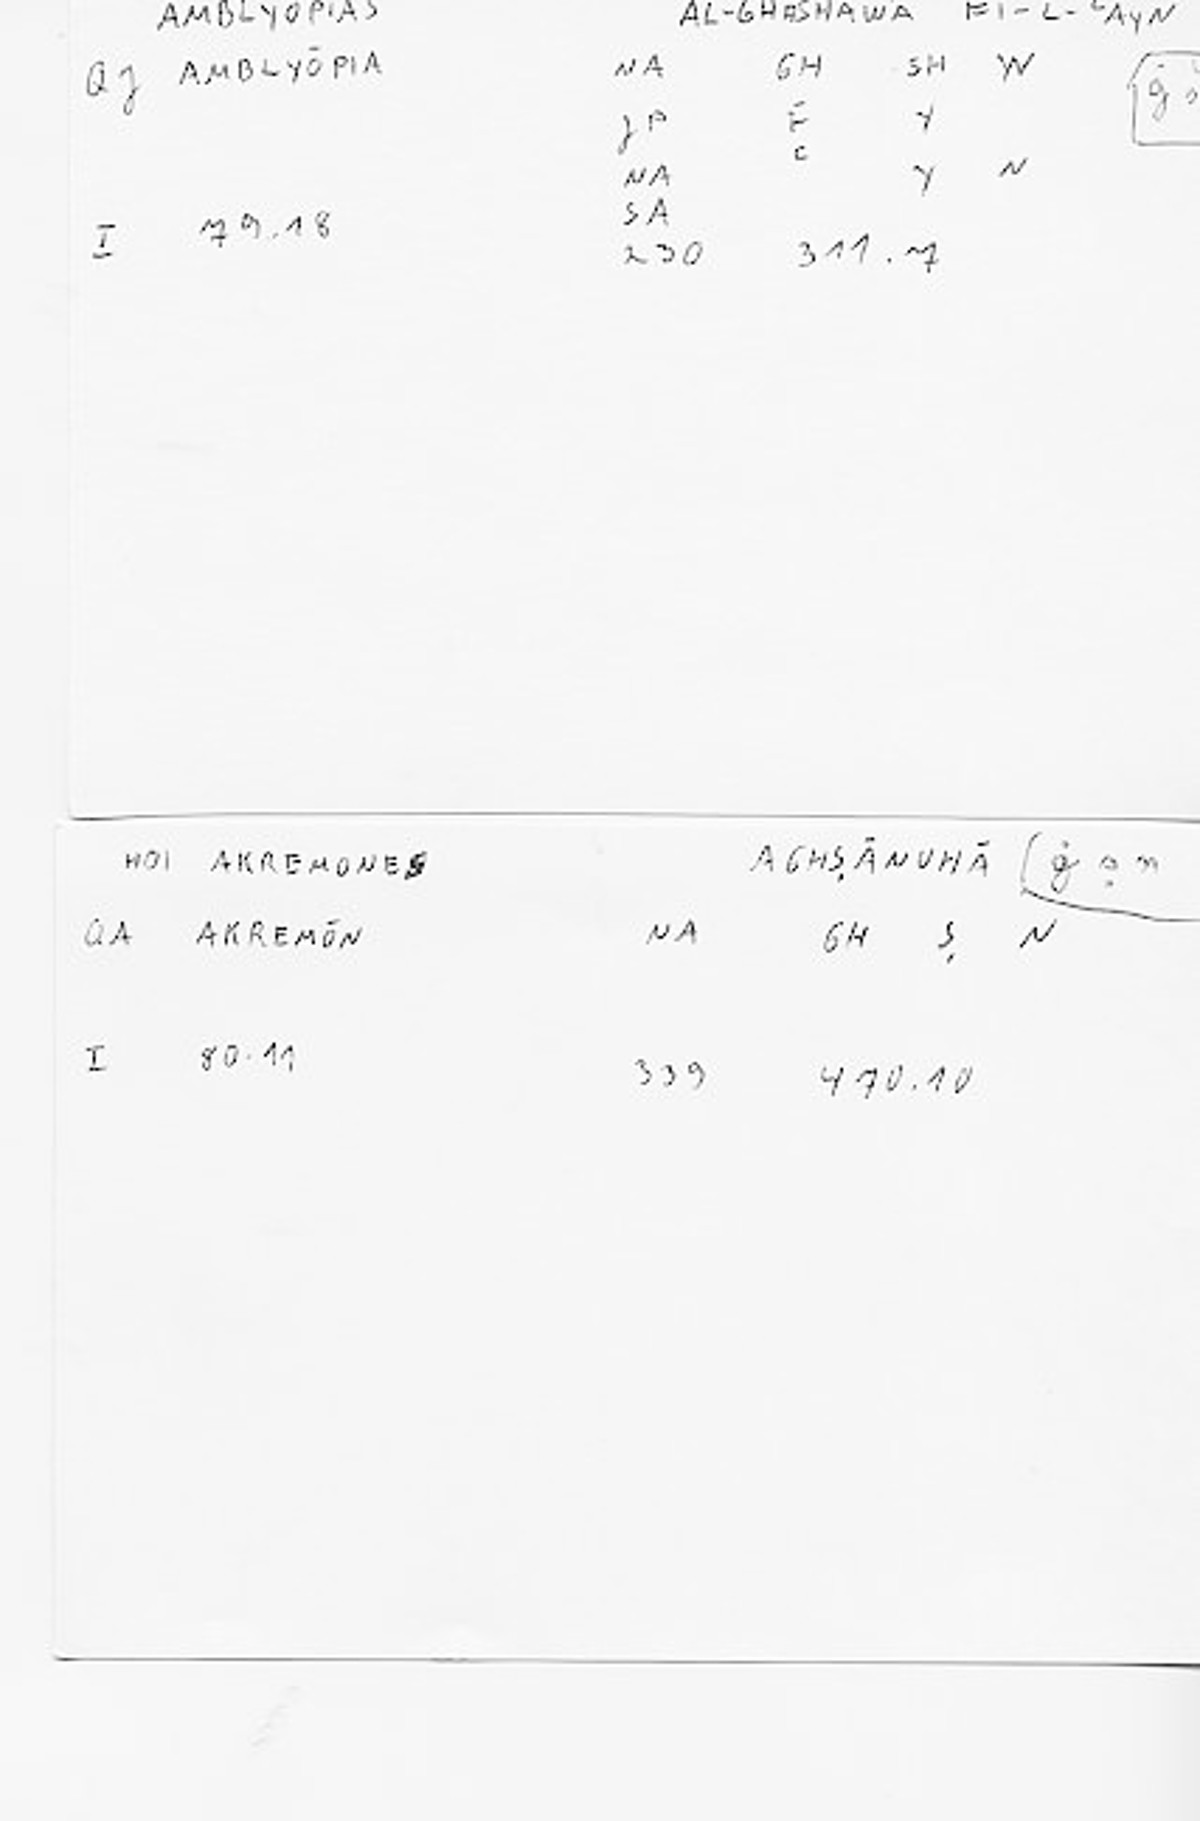 AMBLYOPIAS AL-GHASHAWA FI-L-ʿAyN
QJ AMBLYŌPIA NA GH SH W
JP F Y
NA ʿ Y N
SA
I 79.18 230 311.7
HOI AKREMONES AGHṢĀNUHĀ ġ ṣ n
QA AKREMŌN NA GH Ṣ N
I 80.11 339 470.10